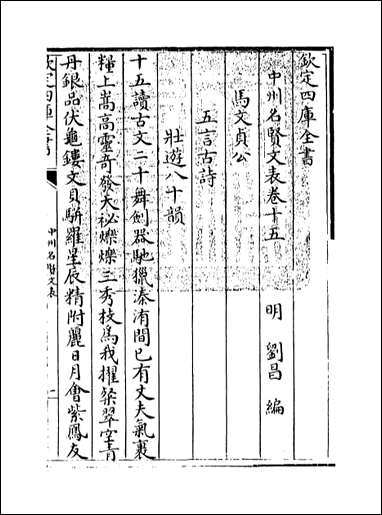 欽定四庫全書
中州名賢文表卷十五
明 劉昌 編
馬文貞公
五言古詩
壯遊八十韻
十五讀古文二十舞劍器馳獵溱洧間已有丈夫氣裹
糧上嵩高靈奇發天祕爍爍三秀枝為我擢粲翠空青
丹銀品伏龜鏤文貝駢羅星辰精附麗日月會紫鳳友
欽定四庫全書
中州名賢文表
一